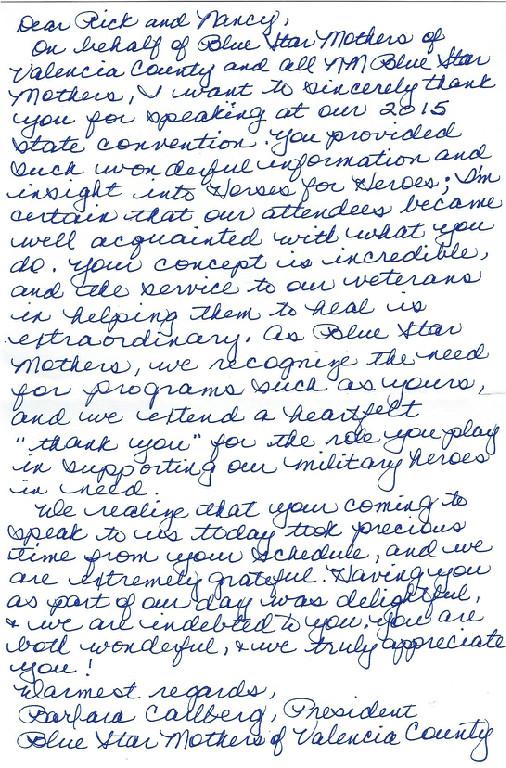 Dear Rick and Nancy,
On behalf of Blue Star Mothers of
Valencia County and all NM Blue Star
Mothers, I want to sincerely thank
you for speaking at our 2015
state convention. You provided
such wonderful information and
insight into Horses for Heroes; I'm
certain that our attendees became
well acquainted with what you
do. Your concept is incredible,
and the service to our veterans
in helping them to heal is
extraordinary. As Blue Star
Mothers, we recognize the need
for programs such as yours,
and we extend a heartfelt
"thank you" for the role you play
in supporting our military heroes
in need.
We realize that your coming to
speak to us today took precious
time from your schedule, and we
are extremely grateful. Having you
as part of our day was delightful,
& we are indebted to you. You are
both wonderful, & we truly appreciate
you!
Warmest regards,
Barbara Callberg, President
Blue Star Mothers of Valencia County